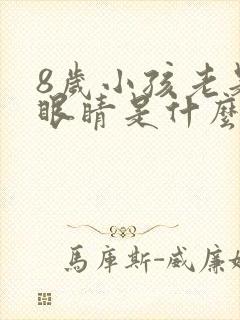 8歲小孩老是
眼睛是什麼
馬庫斯-威廉姆